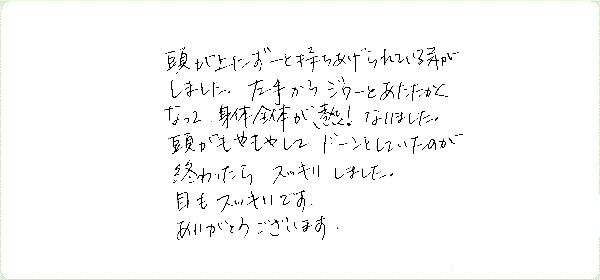 頭が上にずーと持ちあげられている気が
しました。左手からジワーとあたたかく
なって、身体全体が熱!くなりました。
頭がもやもやして ドーンとしていたのが
終わったら スッキリしました。
目もスッキリです。
ありがとうございます。